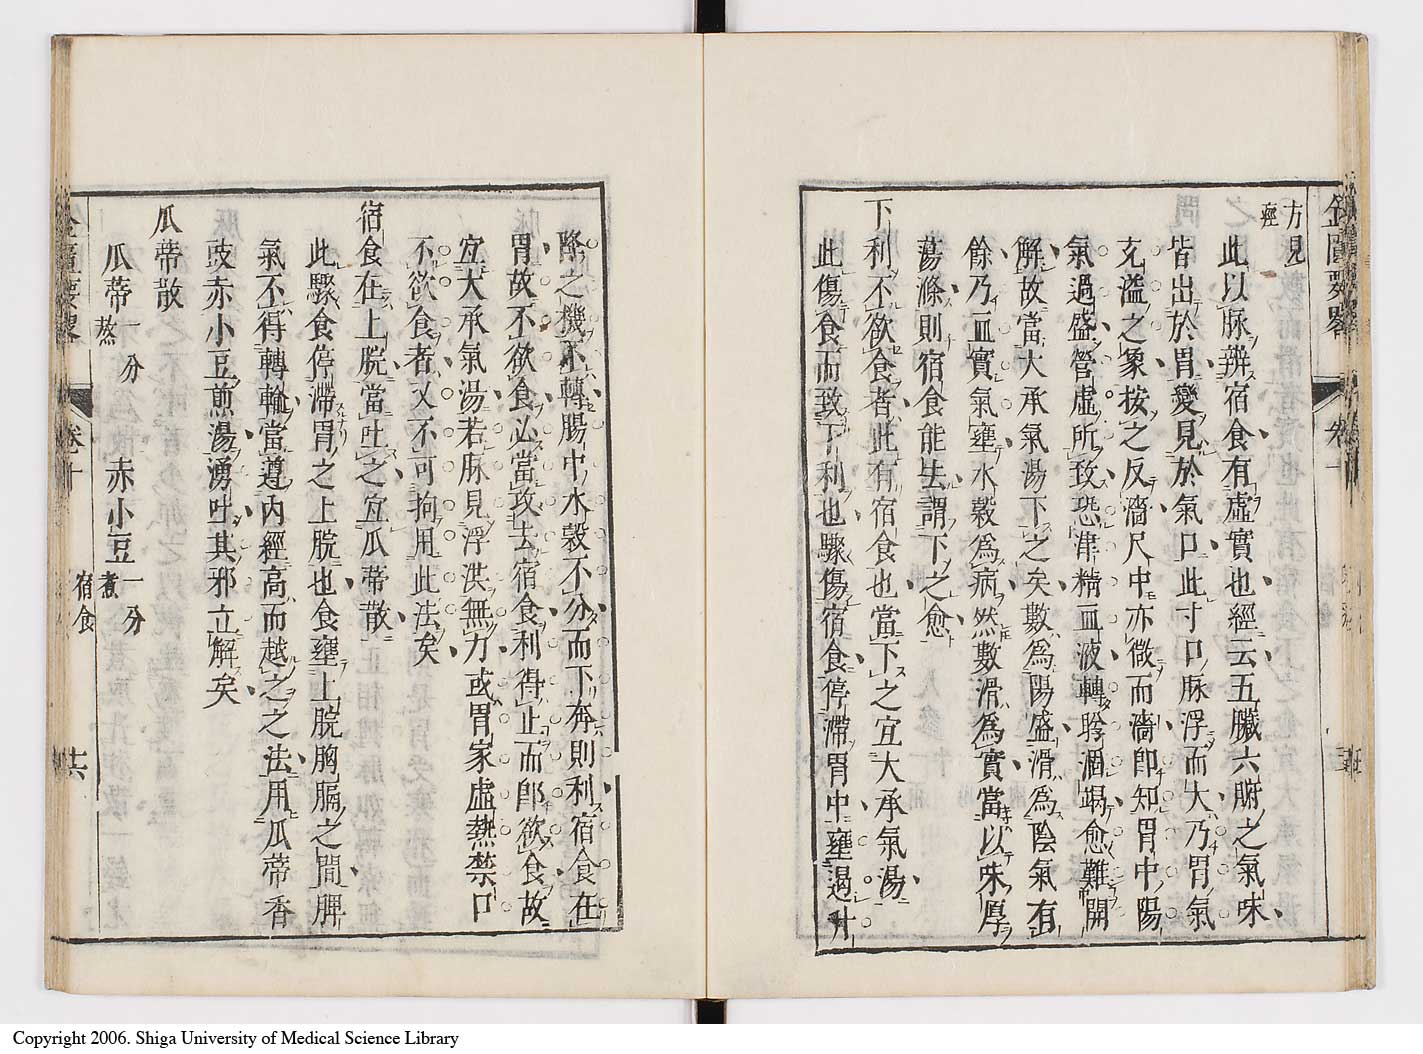 金匱要畧 卷十
方見
痙
此以脉辨宿食有虛實也經云五臟六腑之氣味
皆出於胃變見於氣口此寸口脉浮而大乃胃氣
充溢之象按之反濇尺中亦微而濇卽知胃中陽
氣過盛營虛所致恐津精血液轉胗涸竭愈難開
解故當大承氣湯下之矣數爲陽盛滑爲陰氣有
餘乃血實氣壅水穀爲病然數滑爲實當以味厚
蕩滌則宿食能去謂下之愈
下利不欲食者此有宿食也當下之宜大承氣湯
此傷食而致下利也驟傷宿食停滯胃中壅遏升
降之機不轉腸中水穀不分而下奔則利宿食在
胃故不欲食必當攻去宿食利得止而卽欲食故
宜大承氣湯若脉見浮洪無力或胃家虛熱禁口
不欲食者又不可拘用此法矣
宿食在上脘當吐之宜瓜蒂散
此驟食停滯胃之上脘也食壅上脘胸膈之間脾
氣不得轉輸當遵內經高而越之之法用瓜蒂香
豉赤小豆煎湯湧吐其邪立解矣
瓜蒂散
瓜蒂一分熬 赤小豆一分煮
金匱要畧 卷十 宿食 十六
Copyright 2006. Shiga University of Medical Science Library